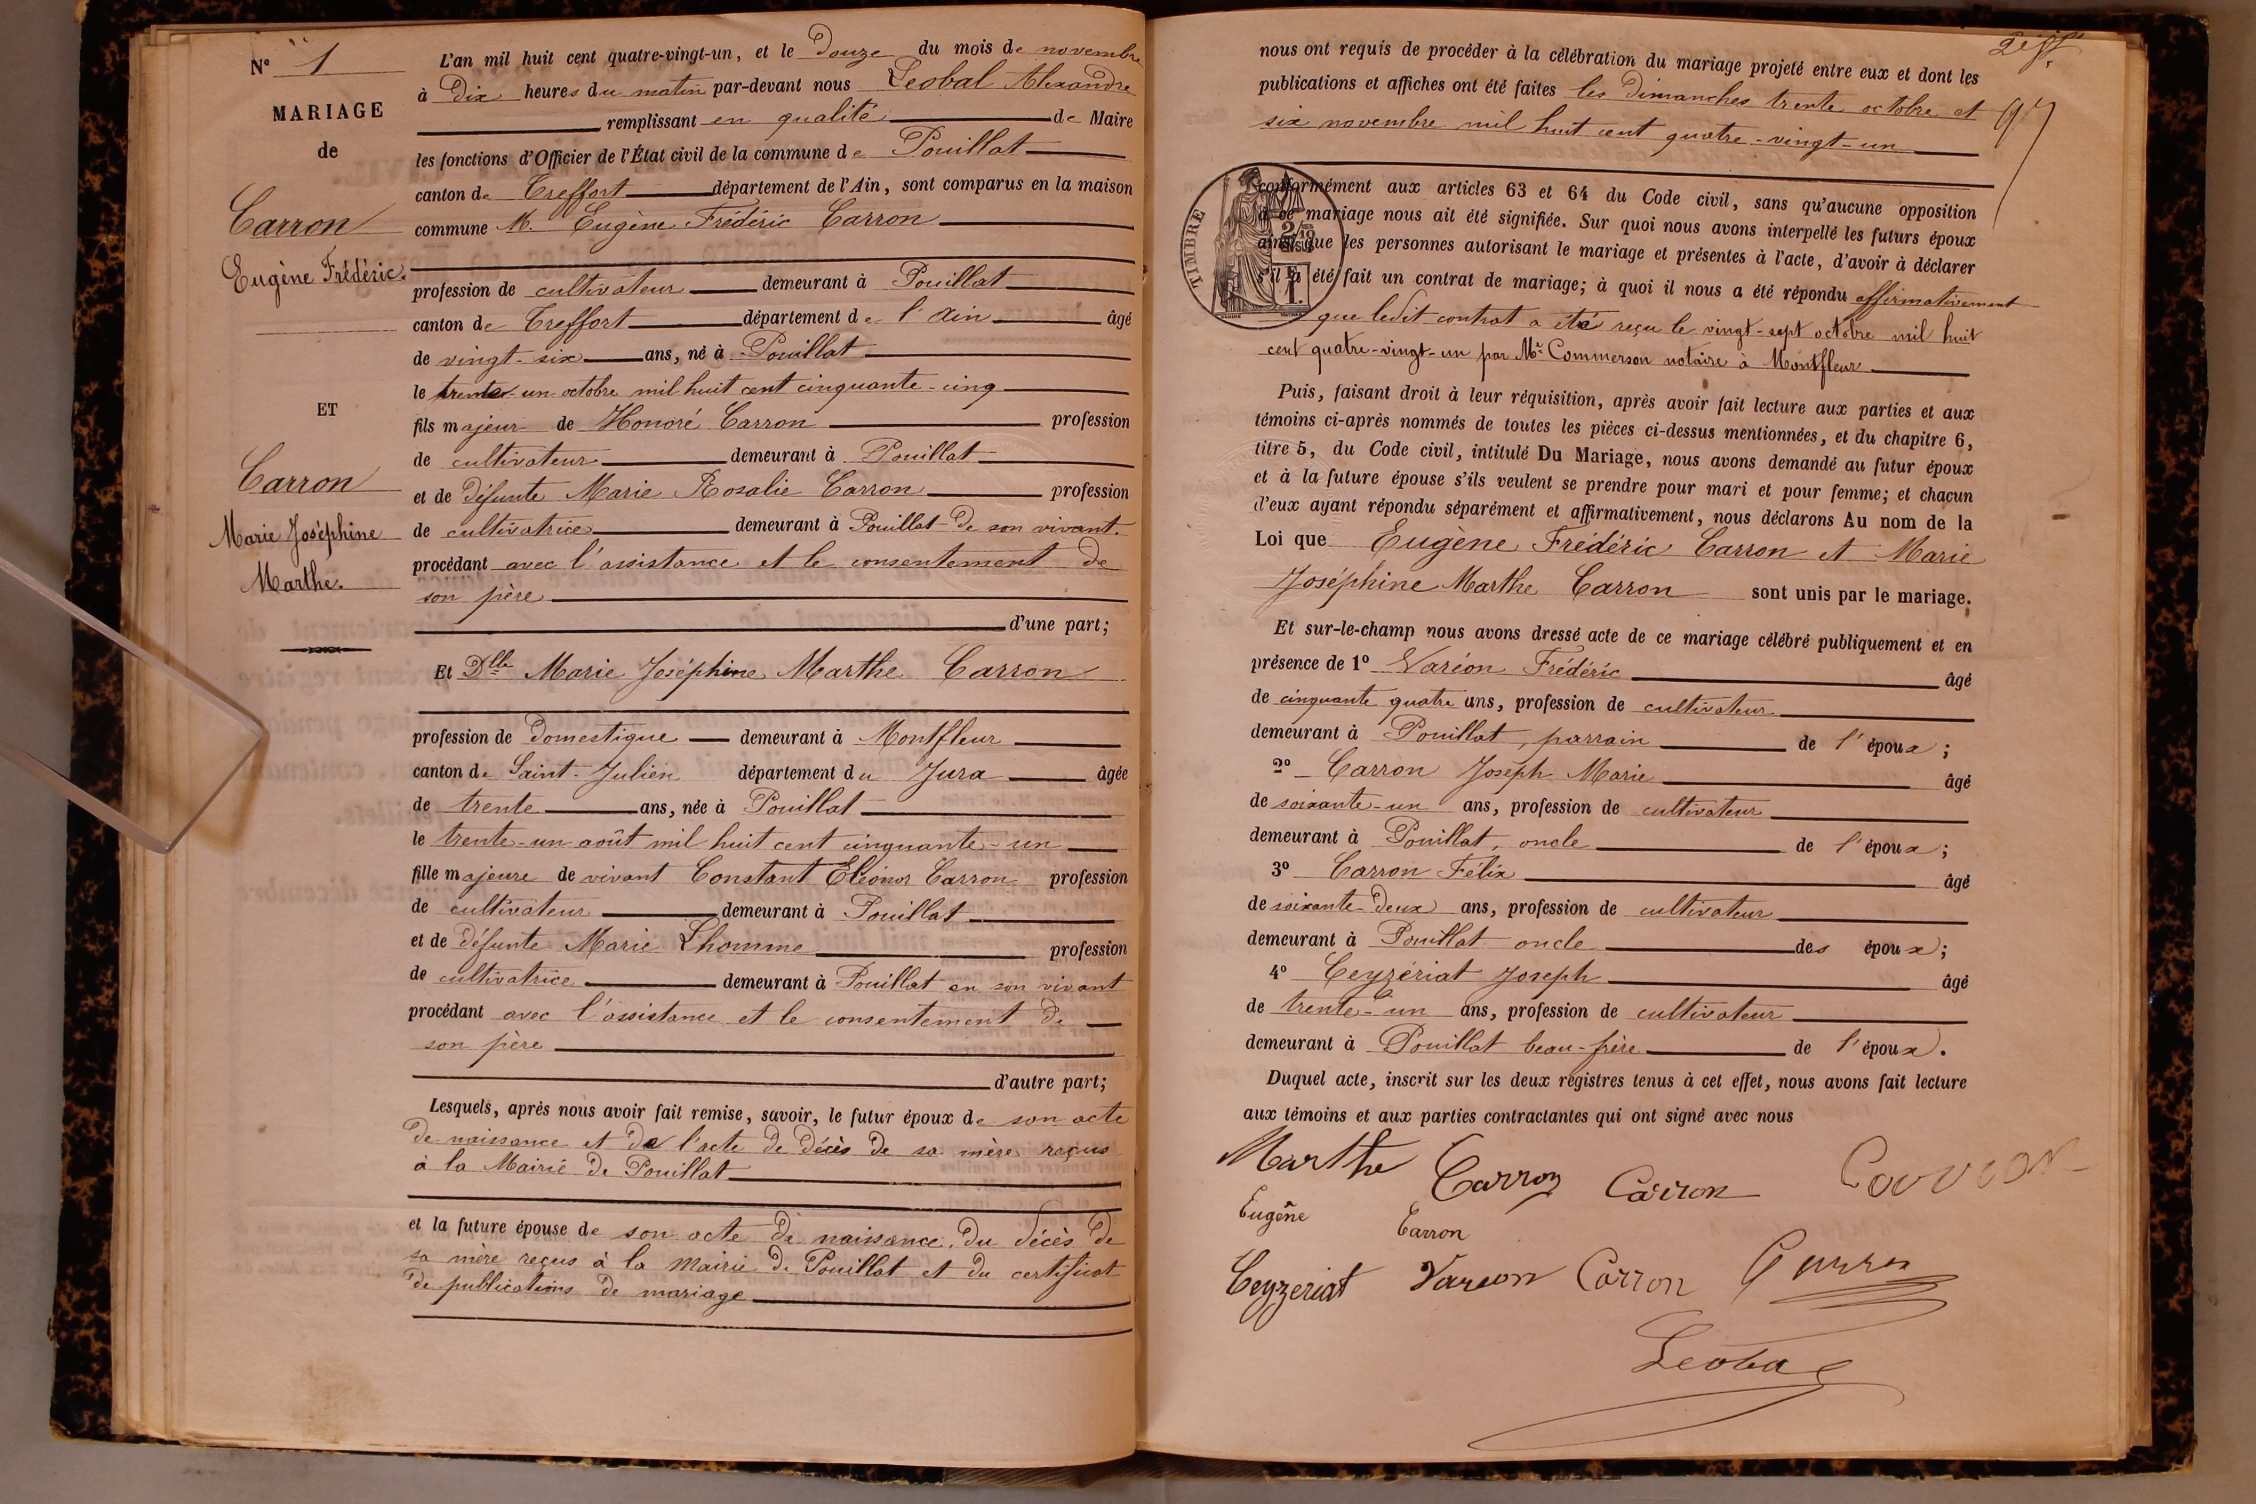 N° 1
MARIAGE
de
Carron
Eugène Frédéric.
ET
Carron
Marie Joséphine
Marthe.
L'an mil huit cent quatre-vingt-un, et le Douze du mois de novembre
à Dix heures du matin par-devant nous Léobal Alexandre
remplissant en qualité de Maire
les fonctions d'Officier de l'État civil de la commune de Pouillat
canton de Treffort département de l'Ain, sont comparus en la maison
commune M. Eugène Frédéric Carron
profession de cultivateur demeurant à Pouillat
canton de Treffort département de l'Ain âgé
de vingt-six ans, né à Pouillat
le trente-un octobre mil huit cent cinquante-cinq
fils majeur de Honoré Carron profession
de cultivateur demeurant à Pouillat
et de défunte Marie Rosalie Carron profession
de cultivatrice demeurant à Pouillat de son vivant.
procédant avec l'assistance et le consentement de
son père
d'une part;
Et Dlle Marie Joséphine Marthe Carron
profession de Domestique demeurant à Montfleur
canton de Saint-Julien département du Jura âgée
de trente ans, née à Pouillat
le trente-un août mil huit cent cinquante-un
fille majeure de vivant Constant Eléonor Carron profession
de cultivateur demeurant à Pouillat
et de défunte Marie Lhomme profession
de cultivatrice demeurant à Pouillat en son vivant
procédant avec l'assistance et le consentement de
son père
d'autre part;
Lesquels, après nous avoir fait remise, savoir, le futur époux de son acte
de naissance et de l'acte de décès de sa mère reçus
à la Mairie de Pouillat
et la future épouse de son acte de naissance, du décès de
sa mère reçus à la mairie de Pouillat et du certificat
de publications de mariage
nous ont requis de procéder à la célébration du mariage projeté entre eux et dont les
publications et affiches ont été faites les Dimanches trente octobre et
six novembre mil huit cent quatre-vingt-un
TIMBRE
conformément aux articles 63 et 64 du Code civil, sans qu'aucune opposition
à ce mariage nous ait été signifiée. Sur quoi nous avons interpellé les futurs époux
ainsi que les personnes autorisant le mariage et présentes à l'acte, d'avoir à déclarer
s'il a été fait un contrat de mariage; à quoi il nous a été répondu affirmativement
que ledit contrat a été reçu le vingt-sept octobre mil huit
cent quatre-vingt-un par Me Commerson notaire à Montfleur
Puis, faisant droit à leur réquisition, après avoir fait lecture aux parties et aux
témoins ci-après nommés de toutes les pièces ci-dessus mentionnées, et du chapitre 6,
titre 5, du Code civil, intitulé Du Mariage, nous avons demandé au futur époux
et à la future épouse s'ils veulent se prendre pour mari et pour femme; et chacun
d'eux ayant répondu séparément et affirmativement, nous déclarons Au nom de la
Loi que Eugène Frédéric Carron et Marie
Joséphine Marthe Carron sont unis par le mariage.
Et sur-le-champ nous avons dressé acte de ce mariage célébré publiquement et en
présence de 1° Varéon Frédéric âgé
de cinquante quatre ans, profession de cultivateur
demeurant à Pouillat, parrain de l'époux;
2° Carron Joseph Marie âgé
de soixante-un ans, profession de cultivateur
demeurant à Pouillat, oncle de l'époux;
3° Carron Félix âgé
de soixante-deux ans, profession de cultivateur
demeurant à Pouillat oncle des époux;
4° Ceyzériat Joseph âgé
de trente-un ans, profession de cultivateur
demeurant à Pouillat beau-frère de l'époux.
Duquel acte, inscrit sur les deux registres tenus à cet effet, nous avons fait lecture
aux témoins et aux parties contractantes qui ont signé avec nous
Marthe Carron Carron Carron
Eugêne Carron
Ceyzeriat Vareon Carron Carron
Léobal